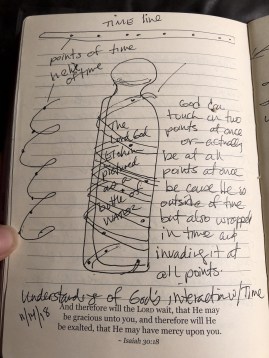 TIME line
points of time
helix
of time
God can
touch in two
points at once
or actually
be at all
points at once
because He is
outside of time
but also wrapped
in time and
invading it at
all points.
The
Lord God
pictured
as a
bottle of
water
Understanding of God's interaction w/Time
11/14/18
And therefore will the LORD wait, that He may
be gracious unto you, and therefore will He
be exalted, that He may have mercy upon you.
~ Isaiah 30:18